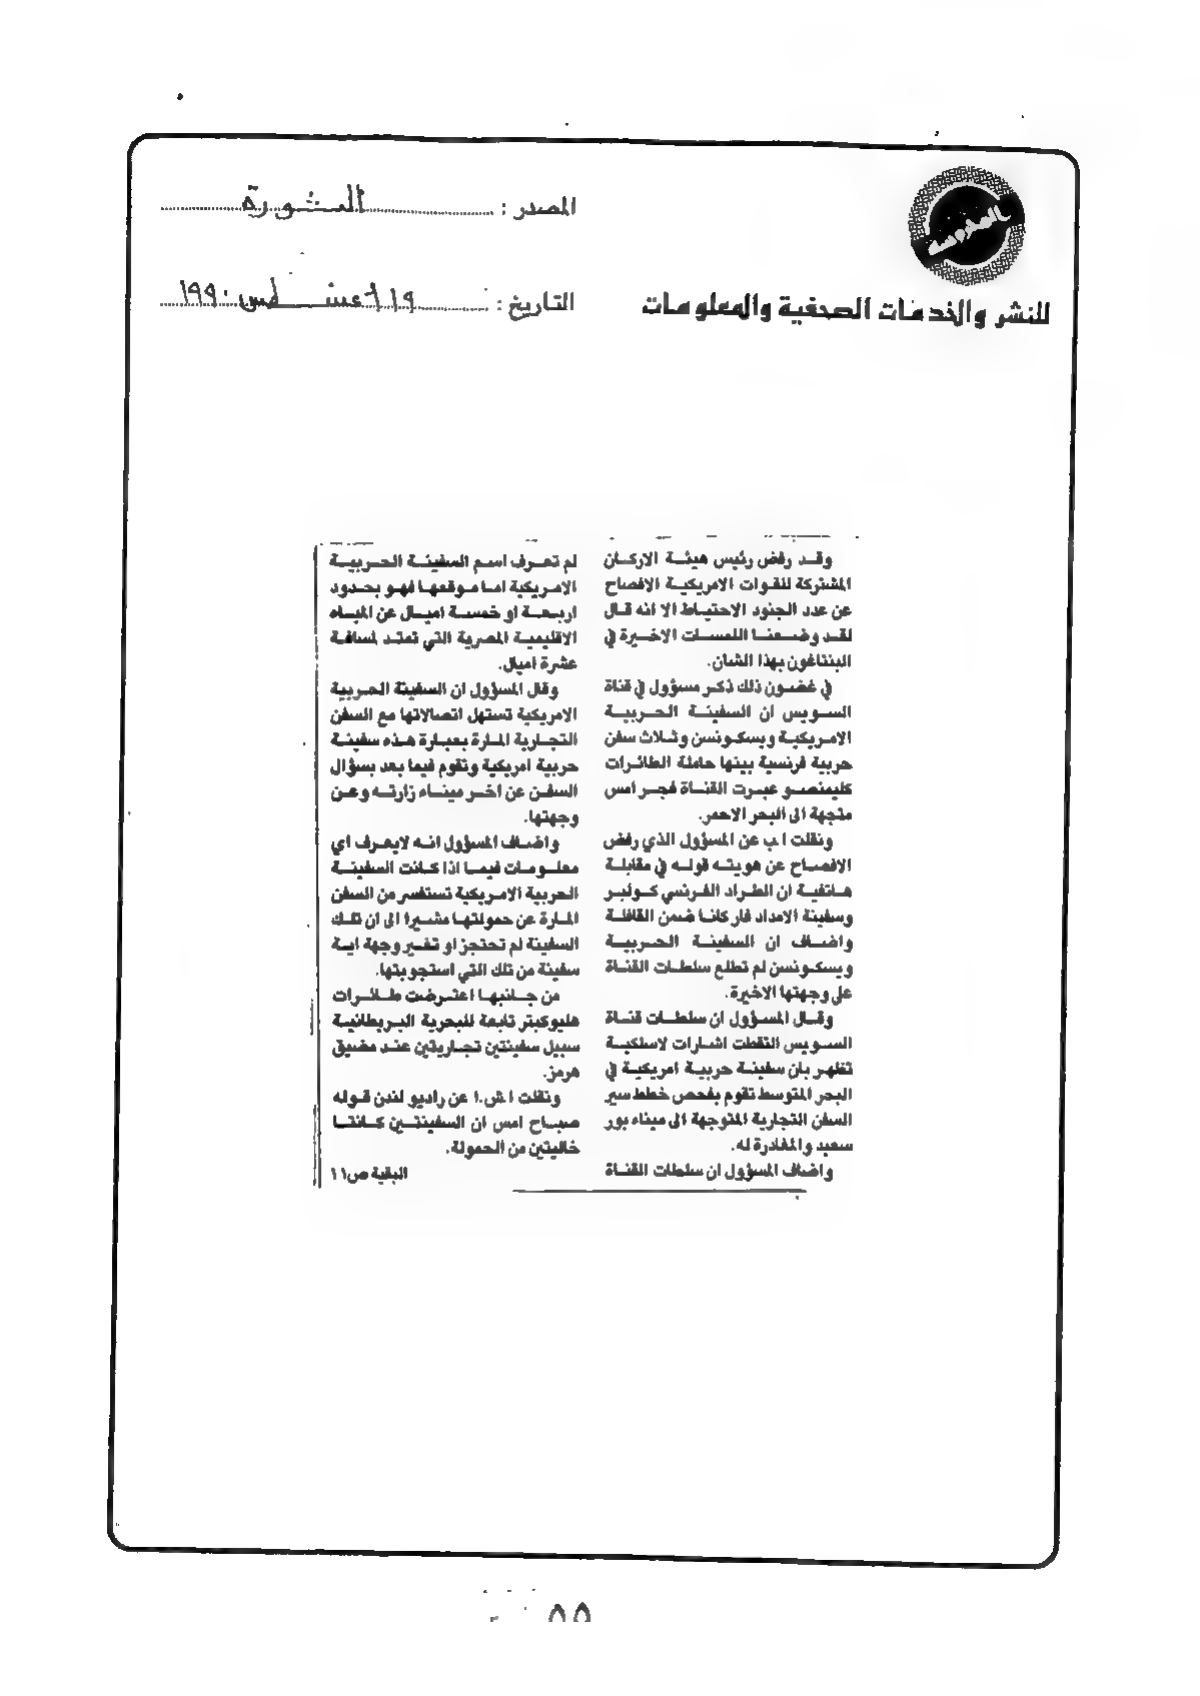 المصدر : الثورة
التاريخ : ١٩ اغسطس ١٩٩٠
المحروسة
للنشر والخدمات الصحفية والمعلومات
وقد رفض رئيس هيئة الاركان
المشتركة للقوات الامريكية الافصاح
عن عدد الجنود الاحتياط الا انه قال
لقد وضعنا اللمسات الاخيرة في
البنتاغون بهذا الشأن.
في غضون ذلك ذكر مسؤول في قناة
السويس ان السفينة الحربية
الامريكية ويسكونسن وثلاث سفن
حربية فرنسية بينها حاملة الطائرات
كليمنصو عبرت القناة فجر امس
متجهة الى البحر الاحمر.
ونقلت ا.ب عن المسؤول الذي رفض
الافصاح عن هويته قوله في مقابلة
هاتفية ان الطراد الفرنسي كولبر
وسفينة الامداد فار كانا ضمن القافلة
واضاف ان السفينة الحربية
ويسكونسن لم تطلع سلطات القناة
على وجهتها الاخيرة.
وقال المسؤول ان سلطات قناة
السويس التقطت اشارات لاسلكية
تظهر بان سفينة حربية امريكية في
البحر المتوسط تقوم بفحص خطط سير
السفن التجارية المتوجهة الى ميناء بور
سعيد والمغادرة له.
واضاف المسؤول ان سلطات القناة
لم تعرف اسم السفينة الحربية
الامريكية اما موقعها فهو بحدود
اربعة او خمسة اميال عن المياه
الاقليمية المصرية التي تمتد لمسافة
عشرة اميال.
وقال المسؤول ان السفينة الحربية
الامريكية تستهل اتصالاتها مع السفن
التجارية المارة بعبارة هذه سفينة
حربية امريكية وتقوم فيما بعد بسؤال
السفن عن اخر ميناء زارته وعن
وجهتها.
واضاف المسؤول انه لايعرف اي
معلومات فيما اذا كانت السفينة
الحربية الامريكية تستفسر من السفن
المارة عن حمولتها مشيرا الى ان تلك
السفينة لم تحتجز او تغير وجهة اية
سفينة من تلك التي استجوبتها.
من جانبها اعترضت طائرات
هليوكبتر تابعة للبحرية البريطانية
سبيل سفينتين تجاريتين عند مضيق
هرمز.
ونقلت ا.ش.ا عن راديو لندن قوله
صباح امس ان السفينتين كانتا
خاليتين من الحمولة.
البقية ص١١